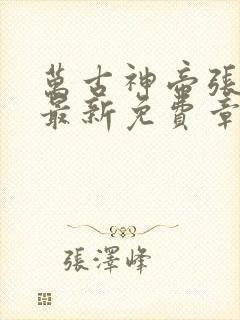 萬古神帝張
最新免費章
張澤峰